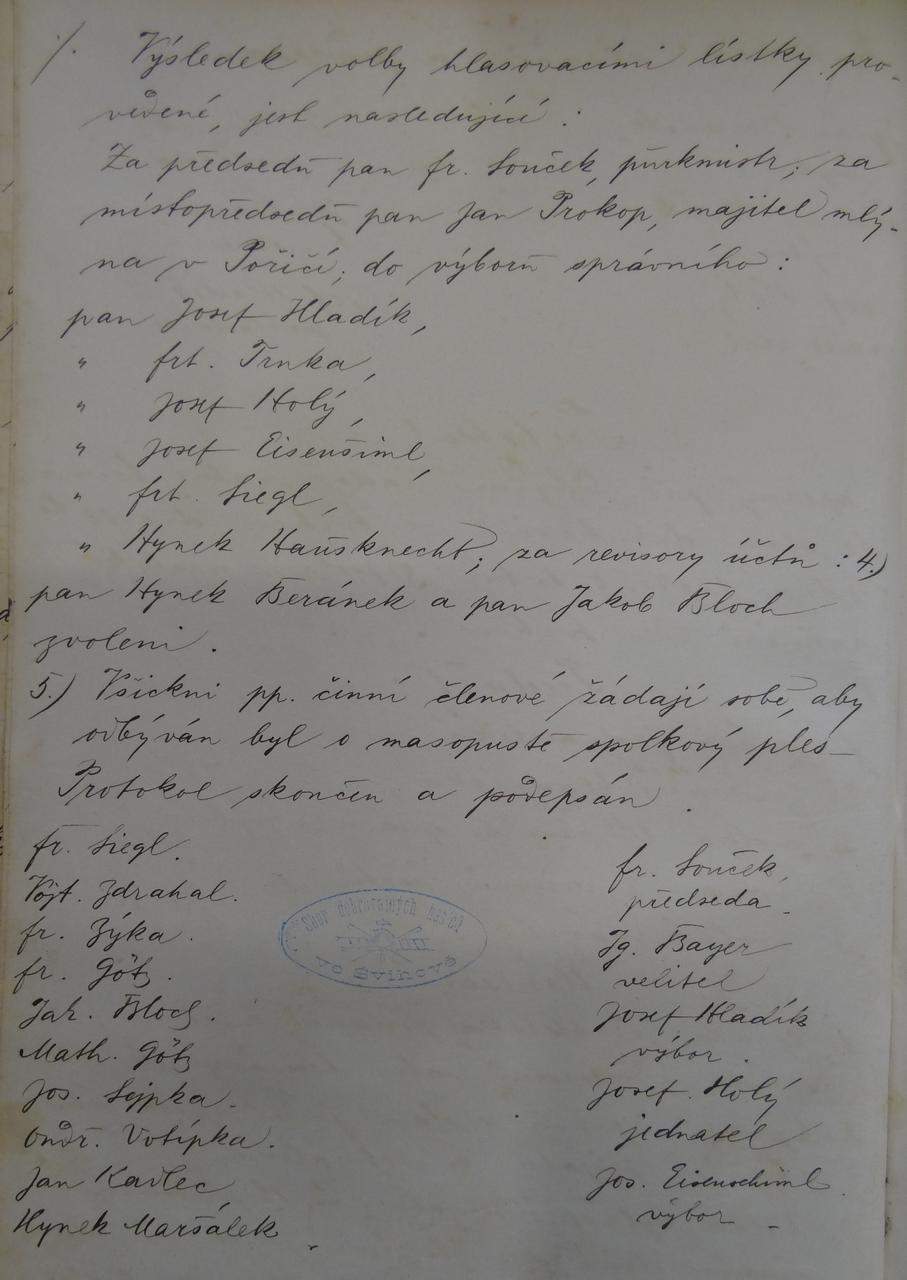 ·/. Výsledek volby hlasovacími lístky pro-
vedené, jest nasledující :
Za předsedu pan fr. Souček, purkmistr; za
místopředsedu pan Jan Prokop, majitel mlý-
na v Poříčí; do výboru správního :
pan Josef Hladík,
" frt. Trnka,
" Josef Holý,
" Josef Eisenšiml,
" frt. Siegl,
" Hynek Hausknecht; za revisory účtů : 4.)
pan Hynek Beránek a pan Jakob Bloch
zvoleni .
5.) Všickni pp. činní členové žádají sobě, aby
odbýván byl o masopustě spolkový ples
Protokol skončen a podepsán .
fr. Siegl.
Vojt. Zdrahal.
fr. Zýka .
fr. Götz .
Jak. Bloch .
Math. Götz
Jos. Sejpka .
Ondř. Votípka .
Jan Kadlec
Hynek Maršálek .
Sbor dobrovolných hasičů
ve Švihově
fr. Souček,
předseda
Ig. Bayer
velitel
Josef Hladík
výbor .
Josef Holý
jednatel
Jos. Eisenschiml
výbor